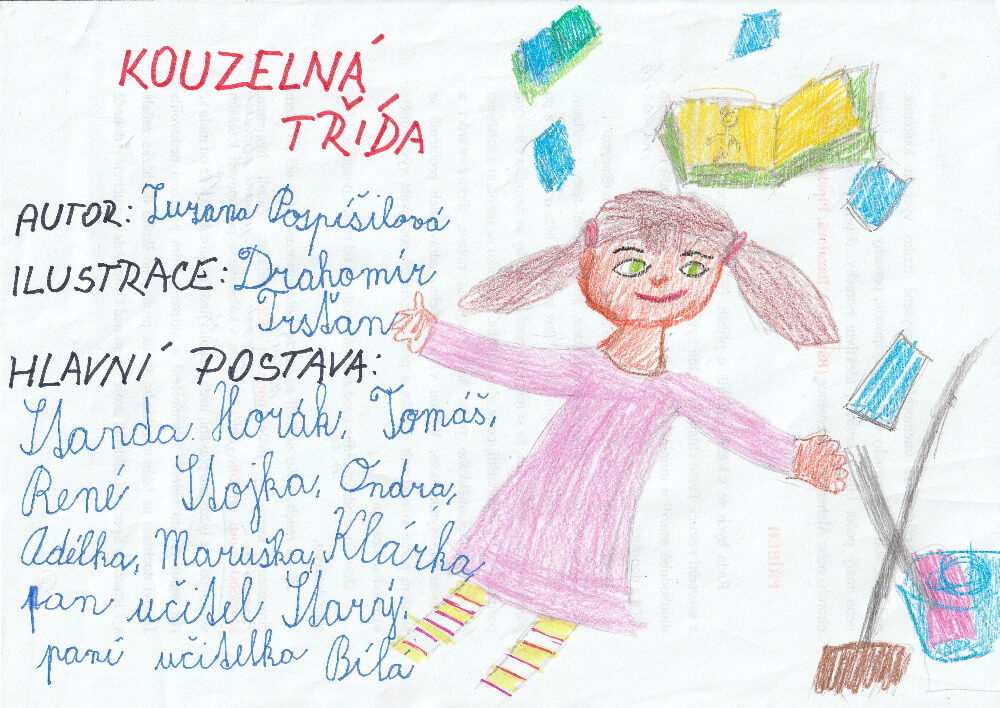 KOUZELNÁ
TŘÍDA
AUTOR: Zuzana Pospíšilová
ILUSTRACE: Drahomír
Trsťan
HLAVNÍ POSTAVA:
Standa Horák, Tomáš,
René Stojka, Ondra,
Adélka, Maruška, Klárka,
pan učitel Starý,
paní učitelka Bílá